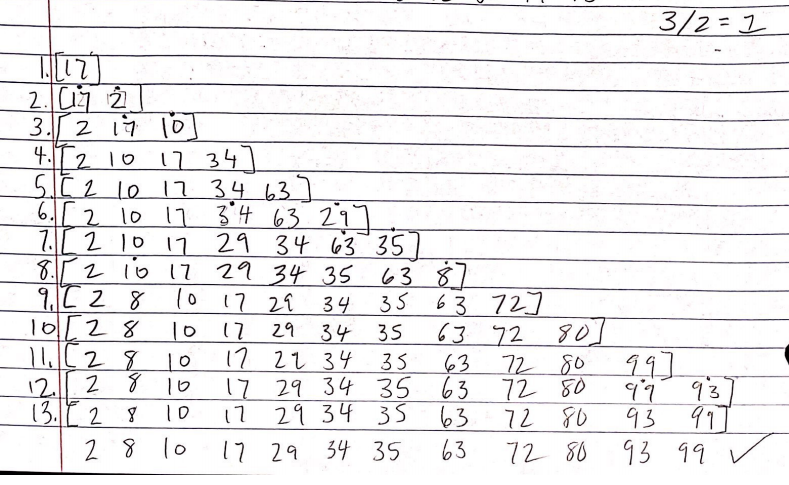 3/2 = 1
1. [17]
2. [17 2]
3. [2 17 10]
4. [2 10 17 34]
5. [2 10 17 34 63]
6. [2 10 17 34 63 29]
7. [2 10 17 29 34 63 35]
8. [2 10 17 29 34 35 63 8]
9. [2 8 10 17 29 34 35 63 72]
10. [2 8 10 17 29 34 35 63 72 80]
11. [2 8 10 17 29 34 35 63 72 80 99]
12. [2 8 10 17 29 34 35 63 72 80 99 93]
13. [2 8 10 17 29 34 35 63 72 80 93 99]
2 8 10 17 29 34 35 63 72 80 93 99 ✓